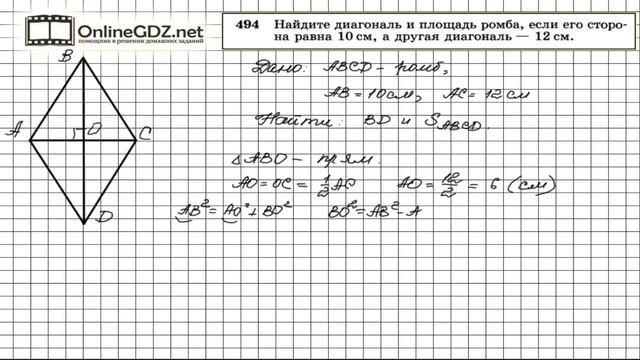 OnlineGDZ.net
помощник в решении домашних заданий
494 Найдите диагональ и площадь ромба, если его сторо-
на равна 10 см, а другая диагональ — 12 см.
B
A
O
C
D
Дано: ABCD - ромб,
AB = 10см, AC = 12см
Найти: BD и S_ABCD.
△ABO - прям.
AO = OC = 1/2 AC AO = 12/2 = 6 (см)
AB² = AO² + BO² BO² = AB² - A